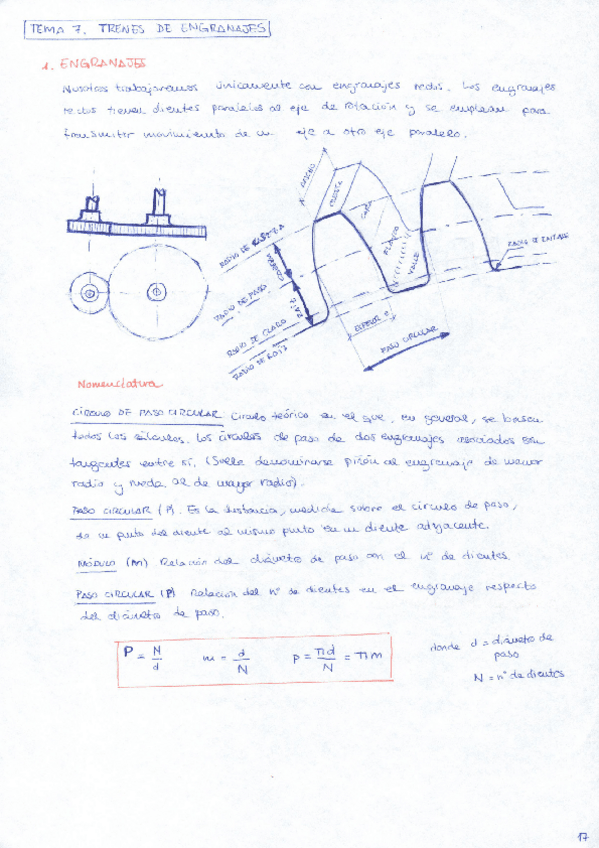 TEMA 7. TRENES DE ENGRANAJES
1. ENGRANAJES
Nosotros trabajaremos únicamente con engranajes rectos. Los engranajes
rectos tienen dientes paralelos al eje de rotación y se emplean para
transmitir movimiento de un eje a otro eje paralelo.
ANCHO
CRESTA
CARA
FLANCO
VALLE
RADIO DE CABEZA
RADIO DE PASO
RADIO DE CLARO
RADIO DE RAIZ
RAIZ
ESPESOR
PASO CIRCULAR
RADIO DE ENTALLE
Nomenclatura
CÍRCULO DE PASO CIRCULAR Círculo teórico en el que, en general, se basan
todos los cálculos. Los círculos de paso de dos engranajes asociados son
tangentes entre sí. (Suele denominarse piñón al engranaje de menor
radio y rueda al de mayor radio).
PASO CIRCULAR (P). Es la distancia, medida sobre el círculo de paso,
de un punto del diente al mismo punto en un diente adyacente.
MÓDULO (m) Relación del diámetro de paso con el nº de dientes.
PASO CIRCULAR (P) Relación del nº de dientes en el engranaje respecto
del diámetro de paso.
P = N/d m = d/N p = πd/N = πm
donde d = diámetro de
paso
N = nº de dientes
17